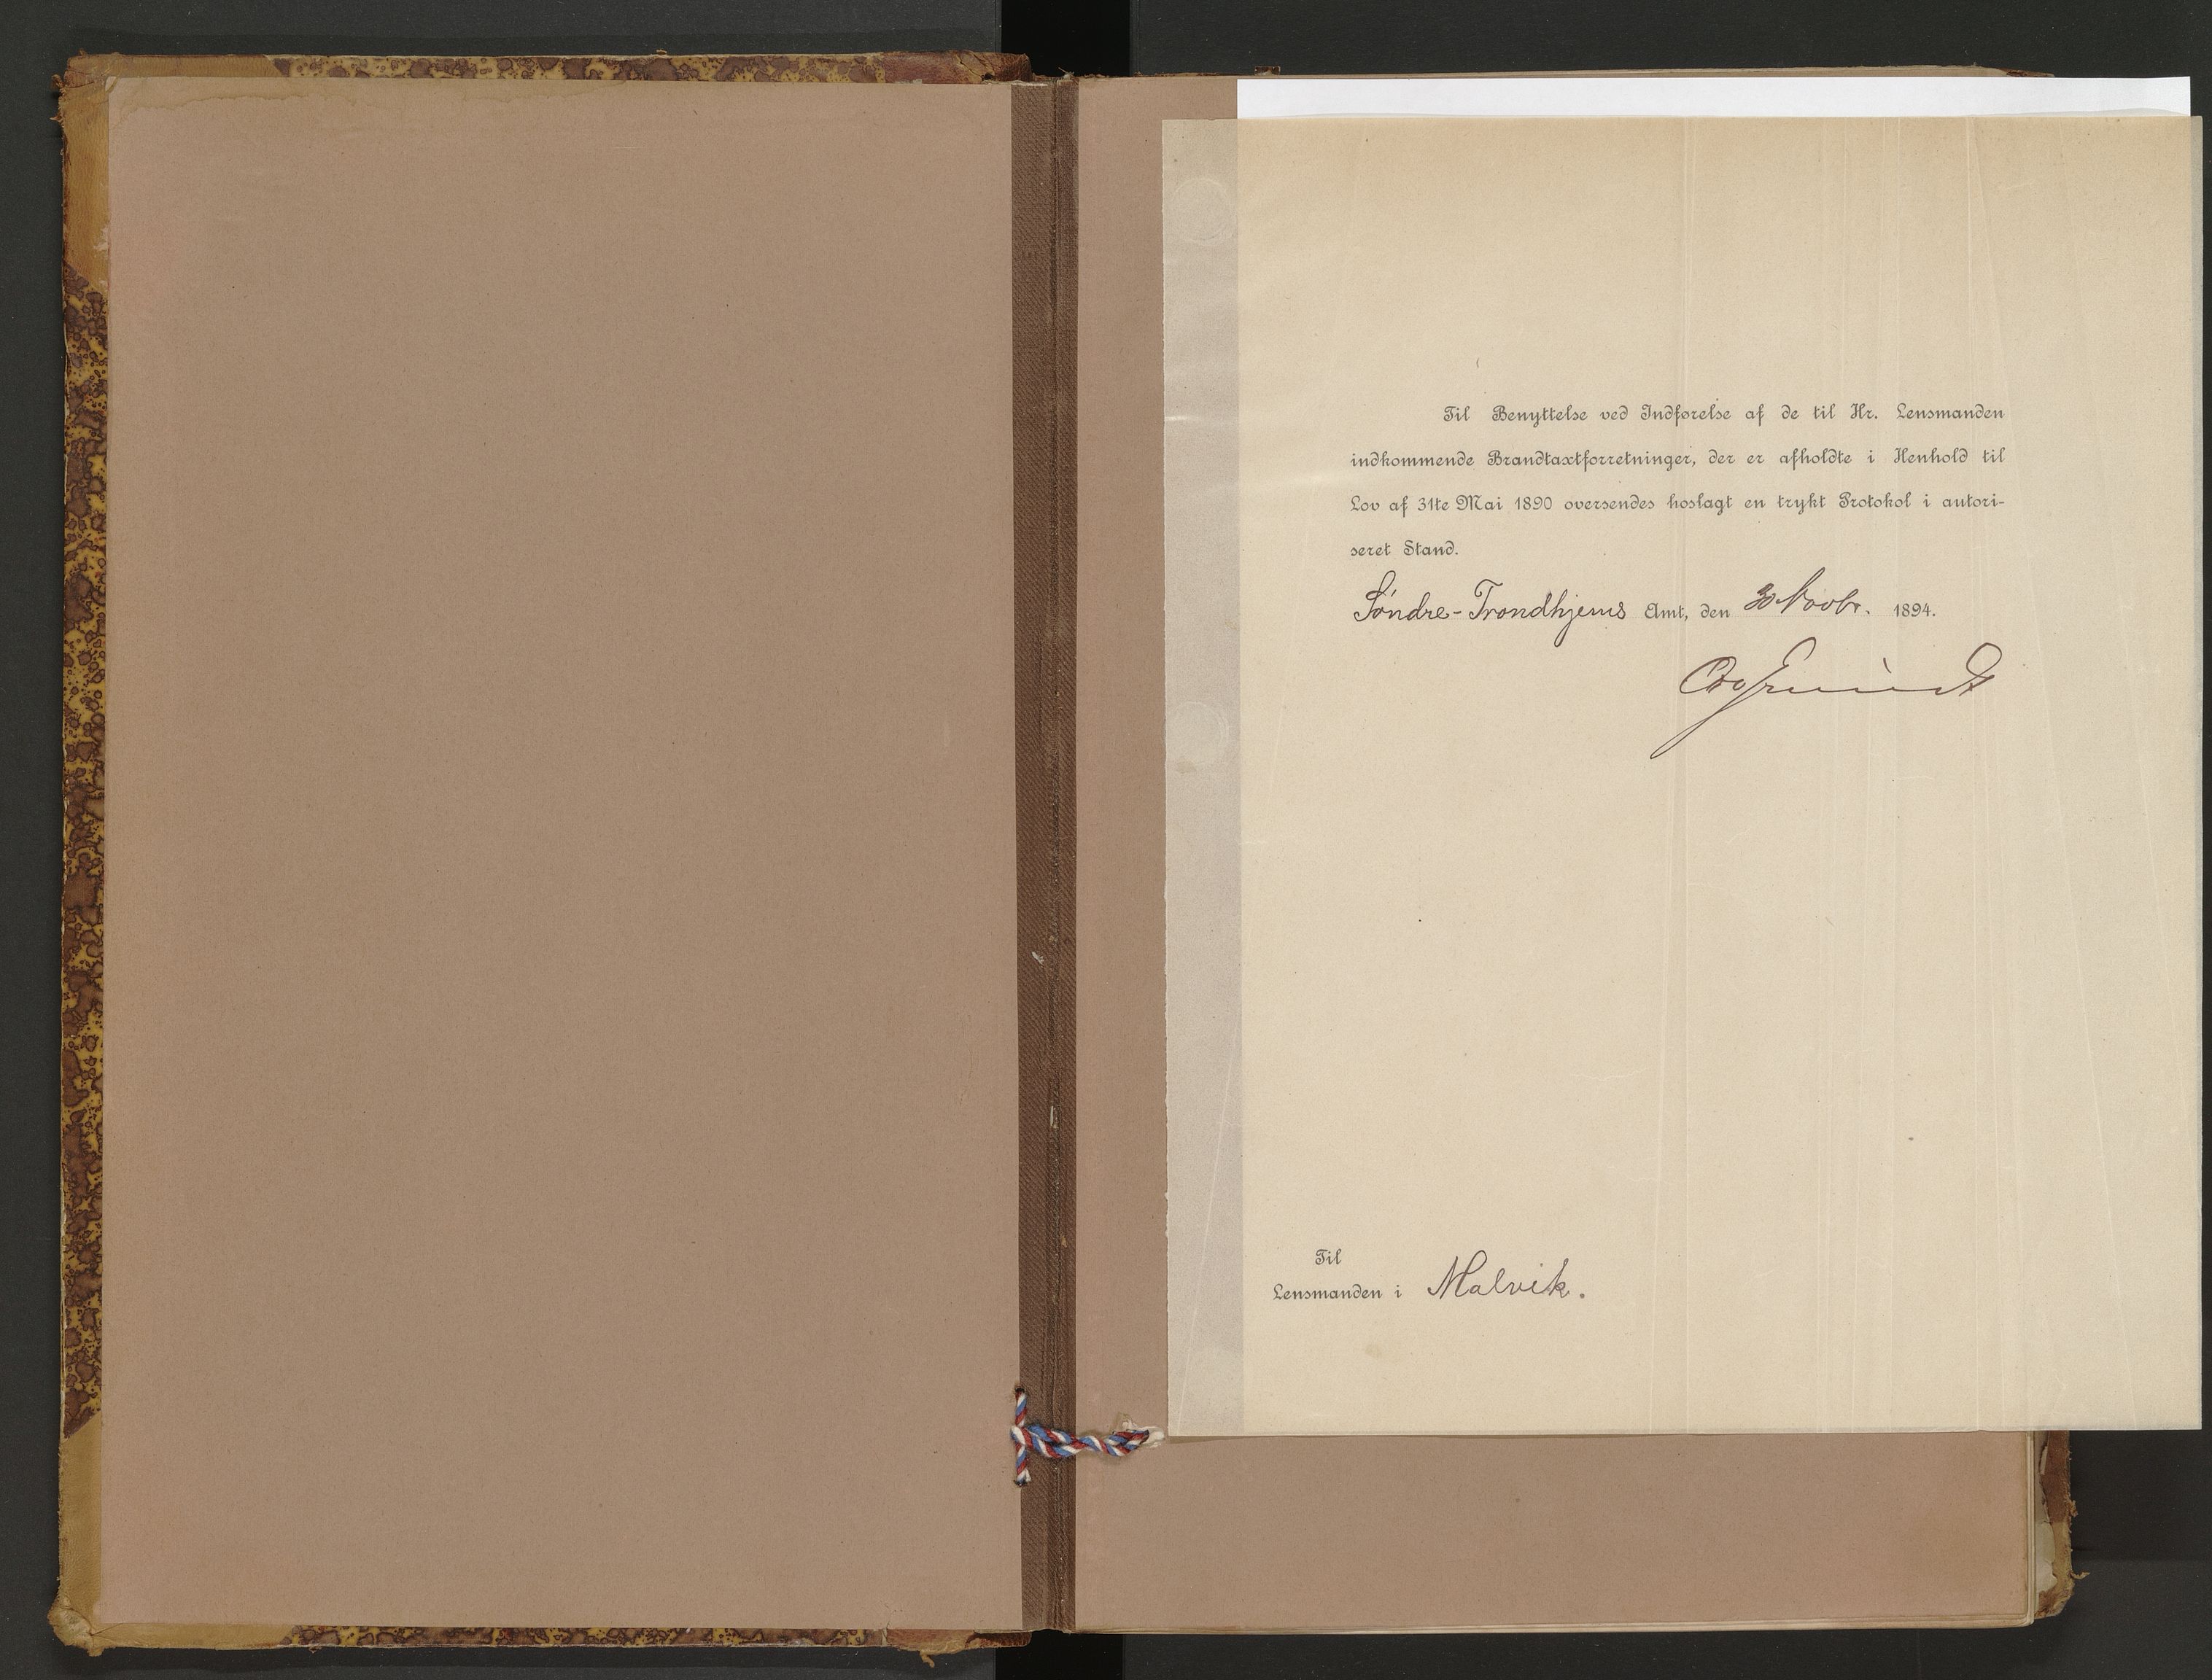 Til Benyttelse ved Indførelse af de til Hr. Lensmanden
indkommende Brandtaxtforretninger, der er afholdte i Henhold til
Lov af 31te Mai 1890 oversendes hoslagt en trykt Protokol i autori-
seret Stand.
Søndre-Trondhjems Amt, den 30 Novbr. 1894.
Til
Lensmanden i Malvik.